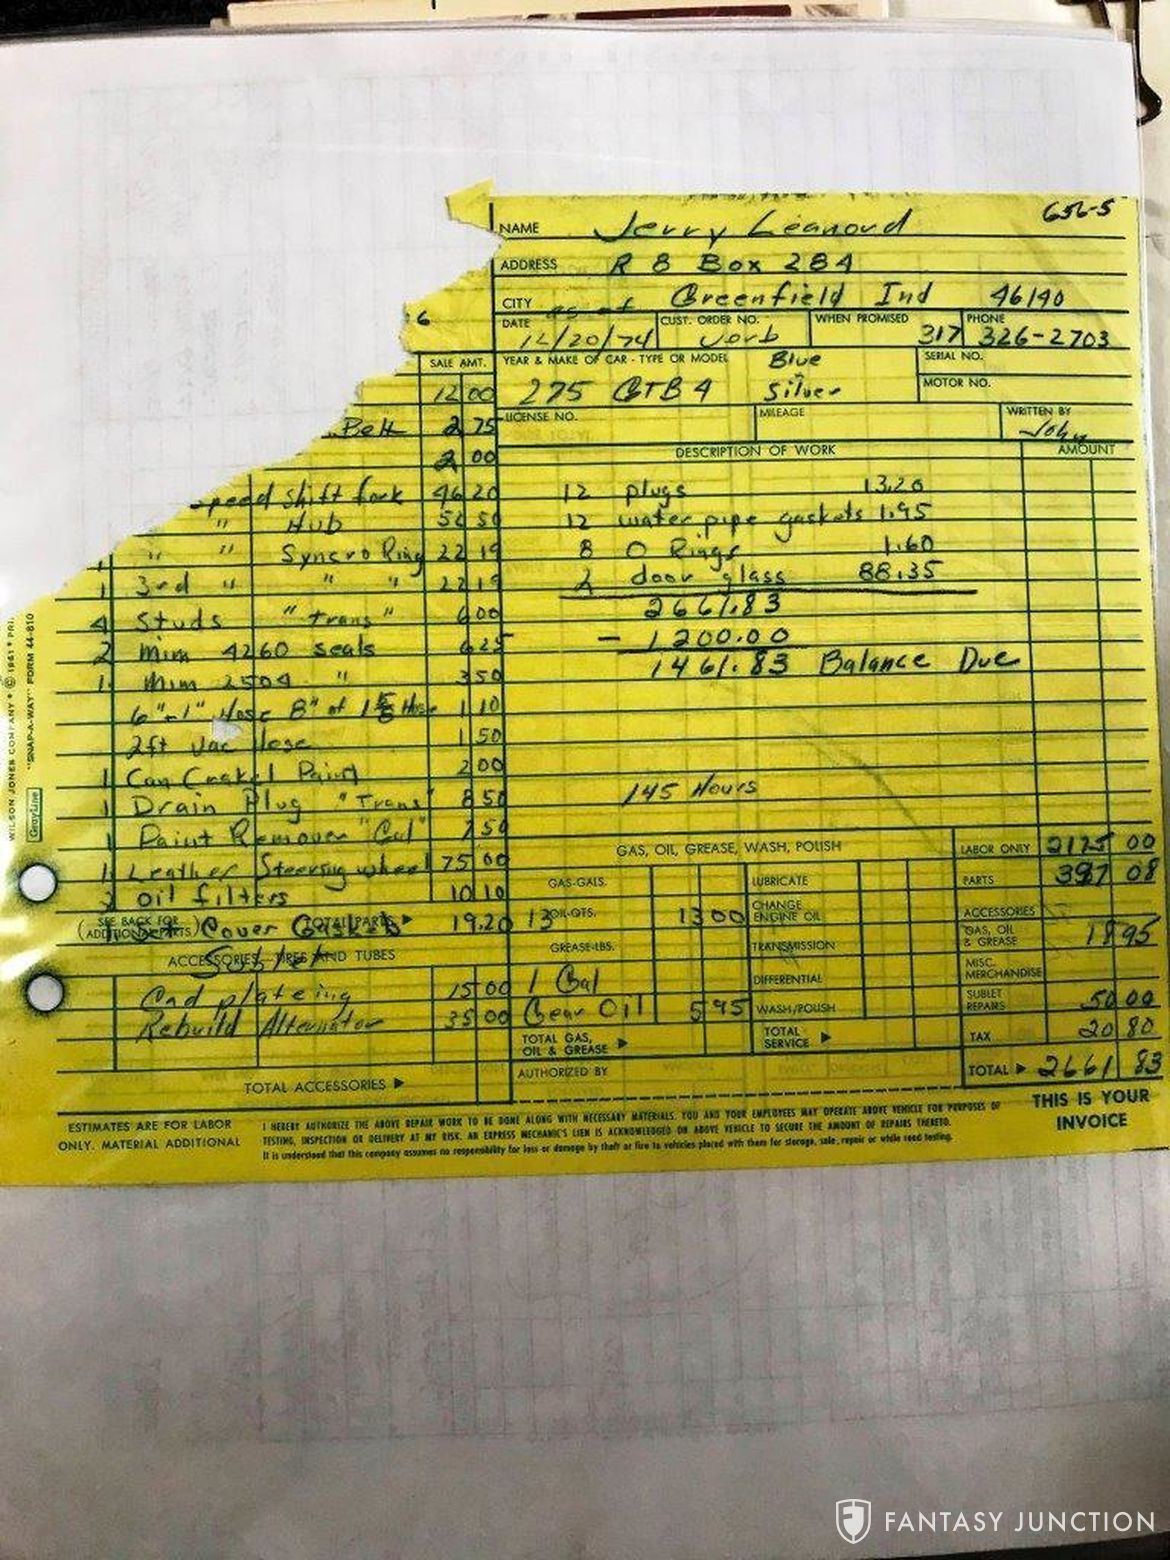 656-5
NAME Jerry Leanord
ADDRESS R 8 Box 284
CITY as of Greenfield Ind 46140
6
DATE 12/20/74 CUST. ORDER NO. Verb WHEN PROMISED PHONE 317 326-2703
SALE AMT. YEAR & MAKE OF CAR - TYPE OR MODEL 275 GTB4 Blue Silver SERIAL NO.
MOTOR NO.
12 00
LICENSE NO. MILEAGE WRITTEN BY John
Belt 2 75
DESCRIPTION OF WORK AMOUNT
2 00
speed shift fork 46 20 12 plugs 13.20
" Hub 50 12 water pipe gaskets 1.95
1 " " Syncro Ring 22 19 8 O Rings 1.60
1 3rd " " " 22 19 2 door glass 88.35
4 Studs "trans" 6 00 2661.83
2 Mim 4260 seals 6 25 - 1200.00
1 Mim 2504 " 3 50 1461.83 Balance Due
6" - 1" Hose 8" of 1 5/8 Hose 1 10
2ft Vac Hose 1 50
1 Can Crakel Paint 2 00
1 Drain Plug "Trans" 8 50 145 Hours
1 Paint Remover "Gal" 7 50
GAS, OIL, GREASE, WASH, POLISH LABOR ONLY 2175 00
1 Leather Steering wheel 75 00 GAS-GALS. LUBRICATE PARTS 397 08
2 oil filters 10 10
(SEE BACK FOR ADDITIONAL PARTS) TOTAL PARTS ▶ 1 Set Cover Gaskets 19.20 13 OIL-QTS. 13 00 CHANGE ENGINE OIL ACCESSORIES
ACCESSORIES, TIRES AND TUBES Sublet GREASE-LBS. TRANSMISSION GAS, OIL & GREASE 18 95
Cad plateing 15 00 1 Gal DIFFERENTIAL MISC. MERCHANDISE
Rebuild Alternator 35 00 Gear Oil 5 95 WASH/POLISH SUBLET REPAIRS 50 00
TOTAL GAS, OIL & GREASE ▶ TOTAL SERVICE ▶ TAX 20 80
TOTAL ACCESSORIES ▶ AUTHORIZED BY TOTAL ▶ 2661 83
ESTIMATES ARE FOR LABOR ONLY. MATERIAL ADDITIONAL
I HEREBY AUTHORIZE THE ABOVE REPAIR WORK TO BE DONE ALONG WITH NECESSARY MATERIALS. YOU AND YOUR EMPLOYEES MAY OPERATE ABOVE VEHICLE FOR PURPOSES OF
TESTING, INSPECTION OR DELIVERY AT MY RISK. AN EXPRESS MECHANIC'S LIEN IS ACKNOWLEDGED ON ABOVE VEHICLE TO SECURE THE AMOUNT OF REPAIRS THERETO.
It is understood that this company assumes no responsibility for loss or damage by theft or fire to vehicles placed with them for storage, sale, repair or while road testing.
THIS IS YOUR INVOICE
WILSON JONES COMPANY • © 1961 • PRI.
GrayLine "SNAP-A-WAY" FORM 44-810
FANTASY JUNCTION